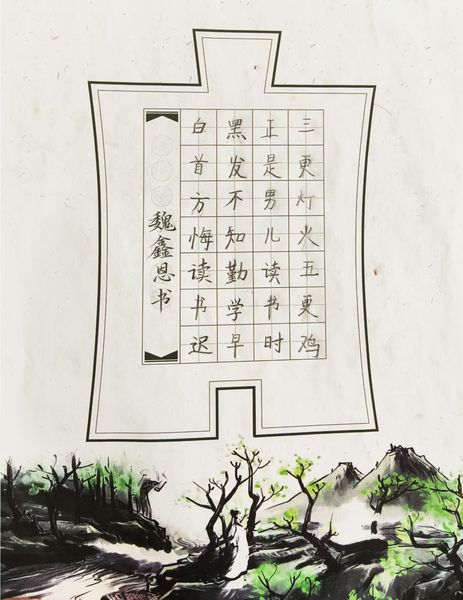 三更灯火五更鸡
正是男儿读书时
黑发不知勤学早
白首方悔读书迟
魏鑫恩书